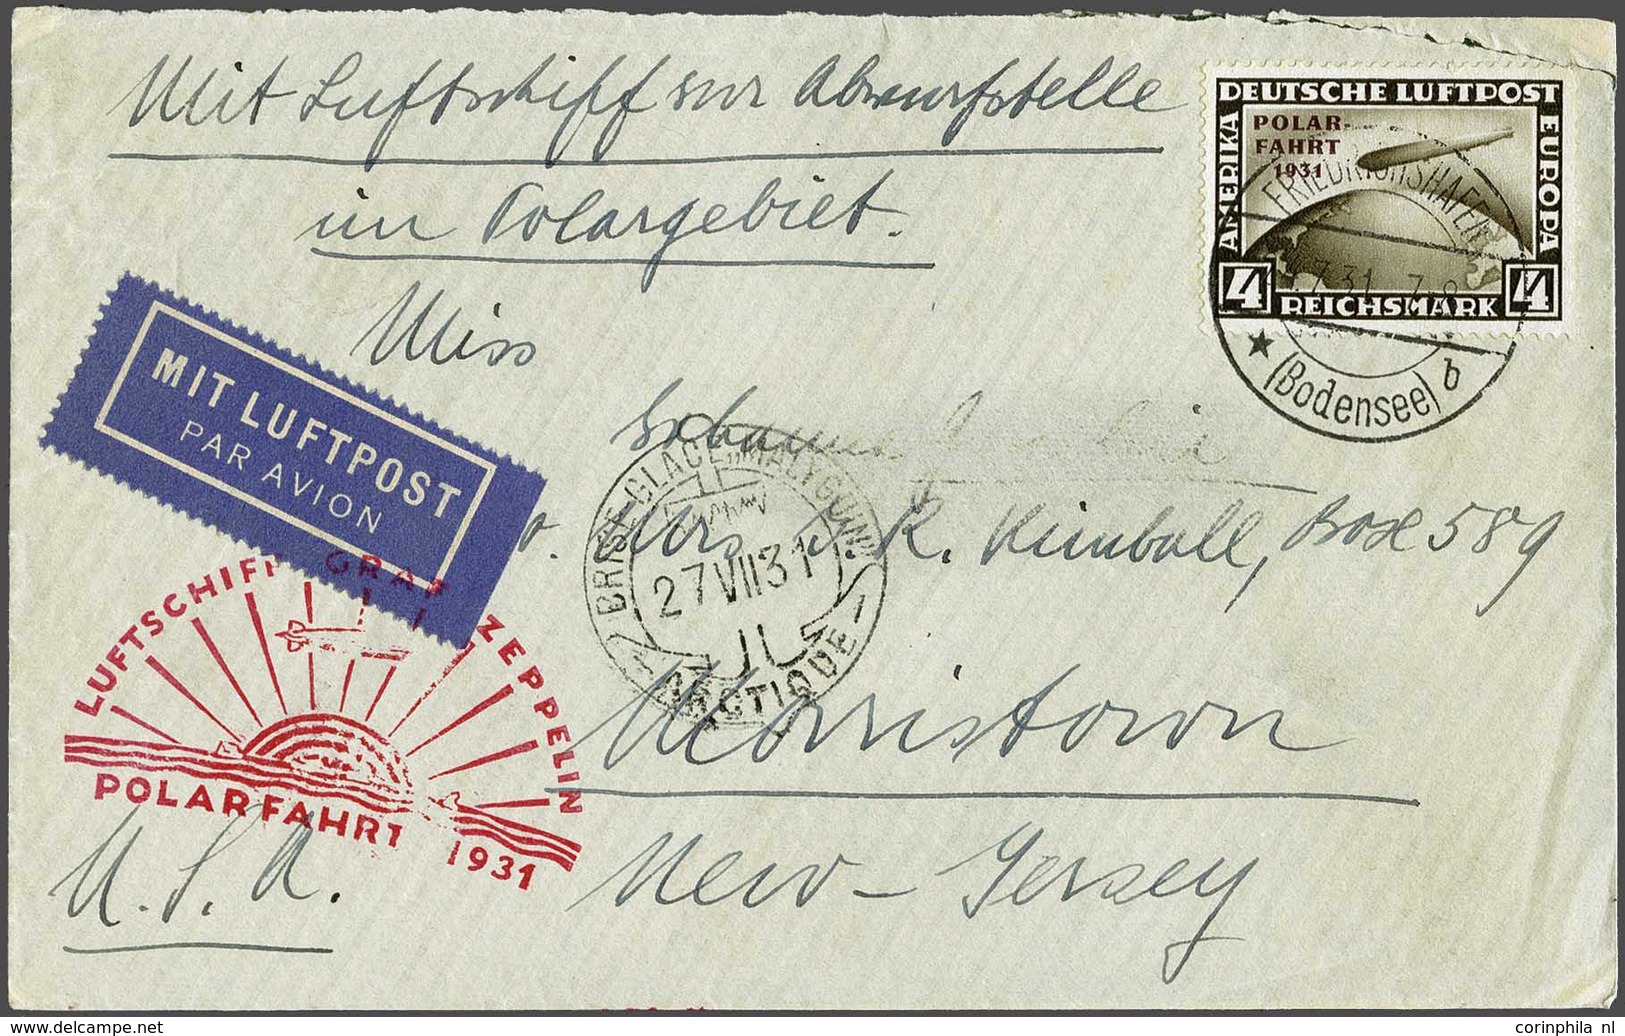 Mit Luftschiff zur Abwurfstelle
im Polargebiet.
DEUTSCHE LUFTPOST
AMERIKA
EUROPA
POLAR-
FAHRT
1931
4 REICHSMARK 4
FRIEDRICHSHAFEN
7.31 7-8
(Bodensee) b
Miss
MIT LUFTPOST
PAR AVION
BRISE-GLACE „MALYGUIN"
27 VII 31
ARCTIQUE
Mrs. R. Kimball, Box 589
Morristown
New-Jersey
U.S.A.
LUFTSCHIFF GRAF ZEPPELIN
POLARFAHRT 1931
corinphila nl